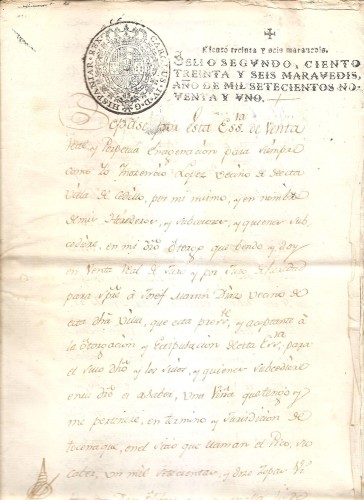 CAROLUS IV D. G. HISPANIAR. REX
Ciento treinta y seis maravedis.
SELLO SEGVNDO, CIENTO
TREINTA Y SEIS MARAVEDIS,
AÑO DE MIL SETECIENTOS NO-
VENTA Y VNO.
Sepase por esta Ess.ra de Venta
Rl. y Perpetua Enagenacion para siempre
como Yo Lopez Vecino de
Villa de Cebolla, por mi mismo, y en nombre
de mis Herederos, y subcesores, y quienes sub-
cediere, en mi dro Otorgo que Vendo y doy
en Venta Rl. de Juro y por Juro de
para spre á Josef Martin Diaz Vecino de
esta dha Villa, que esta preste y aceptante à
la Otorgacion y de esta Ess.ra para
el suio dho y los suios, y quienes subcediere
en su dro es a saber, una Viña que tengo y
me pertenece, en termino y Juridicion de
en el sitio que llaman el
mil y doze Zepas